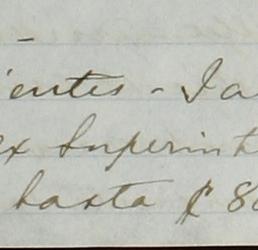 ientes - Ja
ex Superint
hasta $ 80